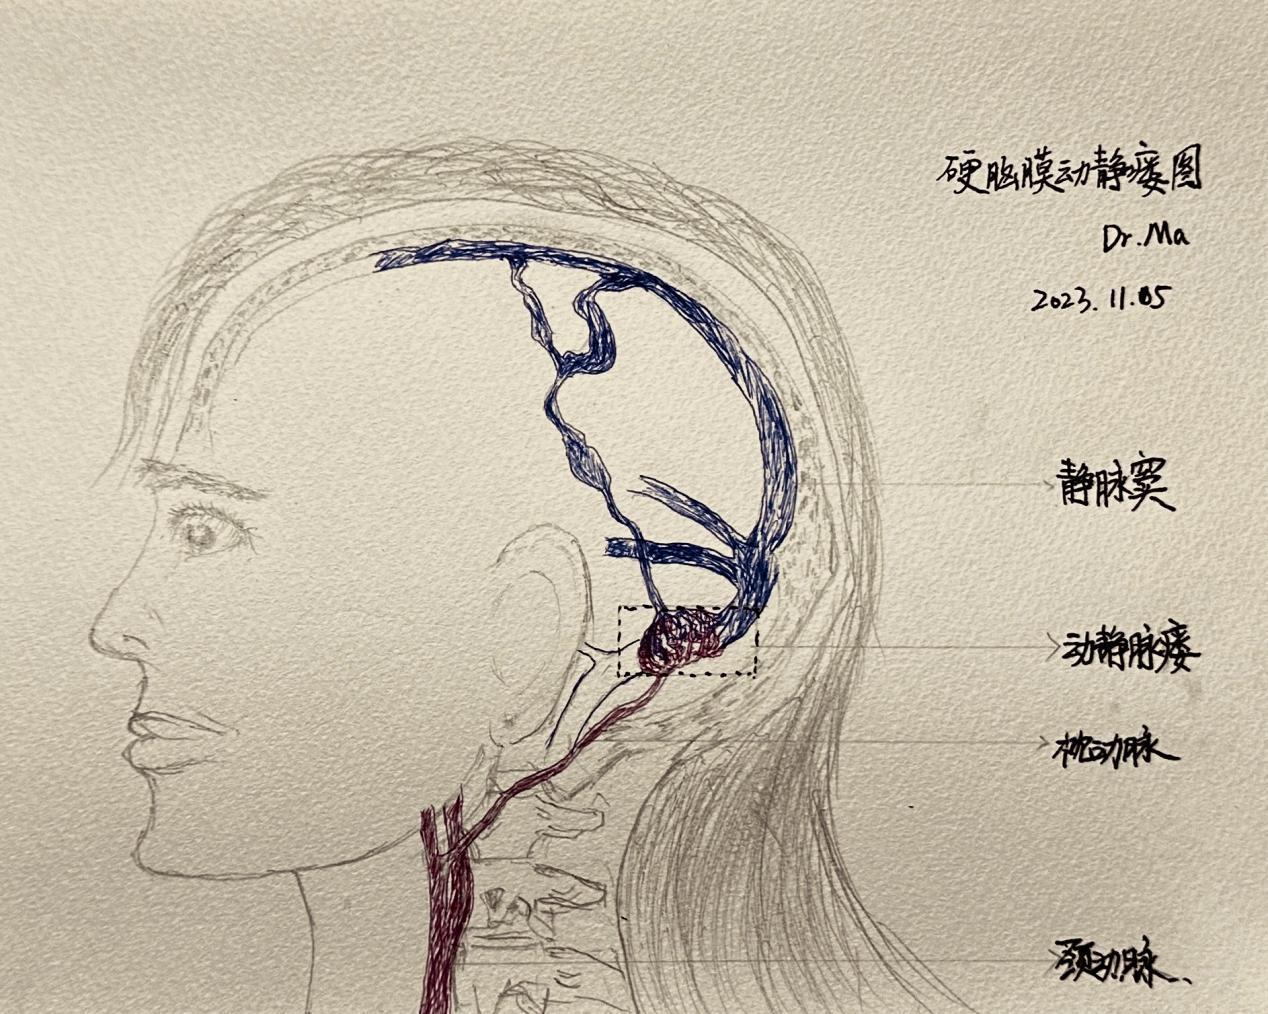 硬脑膜动静瘘图
Dr.Ma
2023.11.05
静脉窦
动静脉瘘
枕动脉
颈动脉